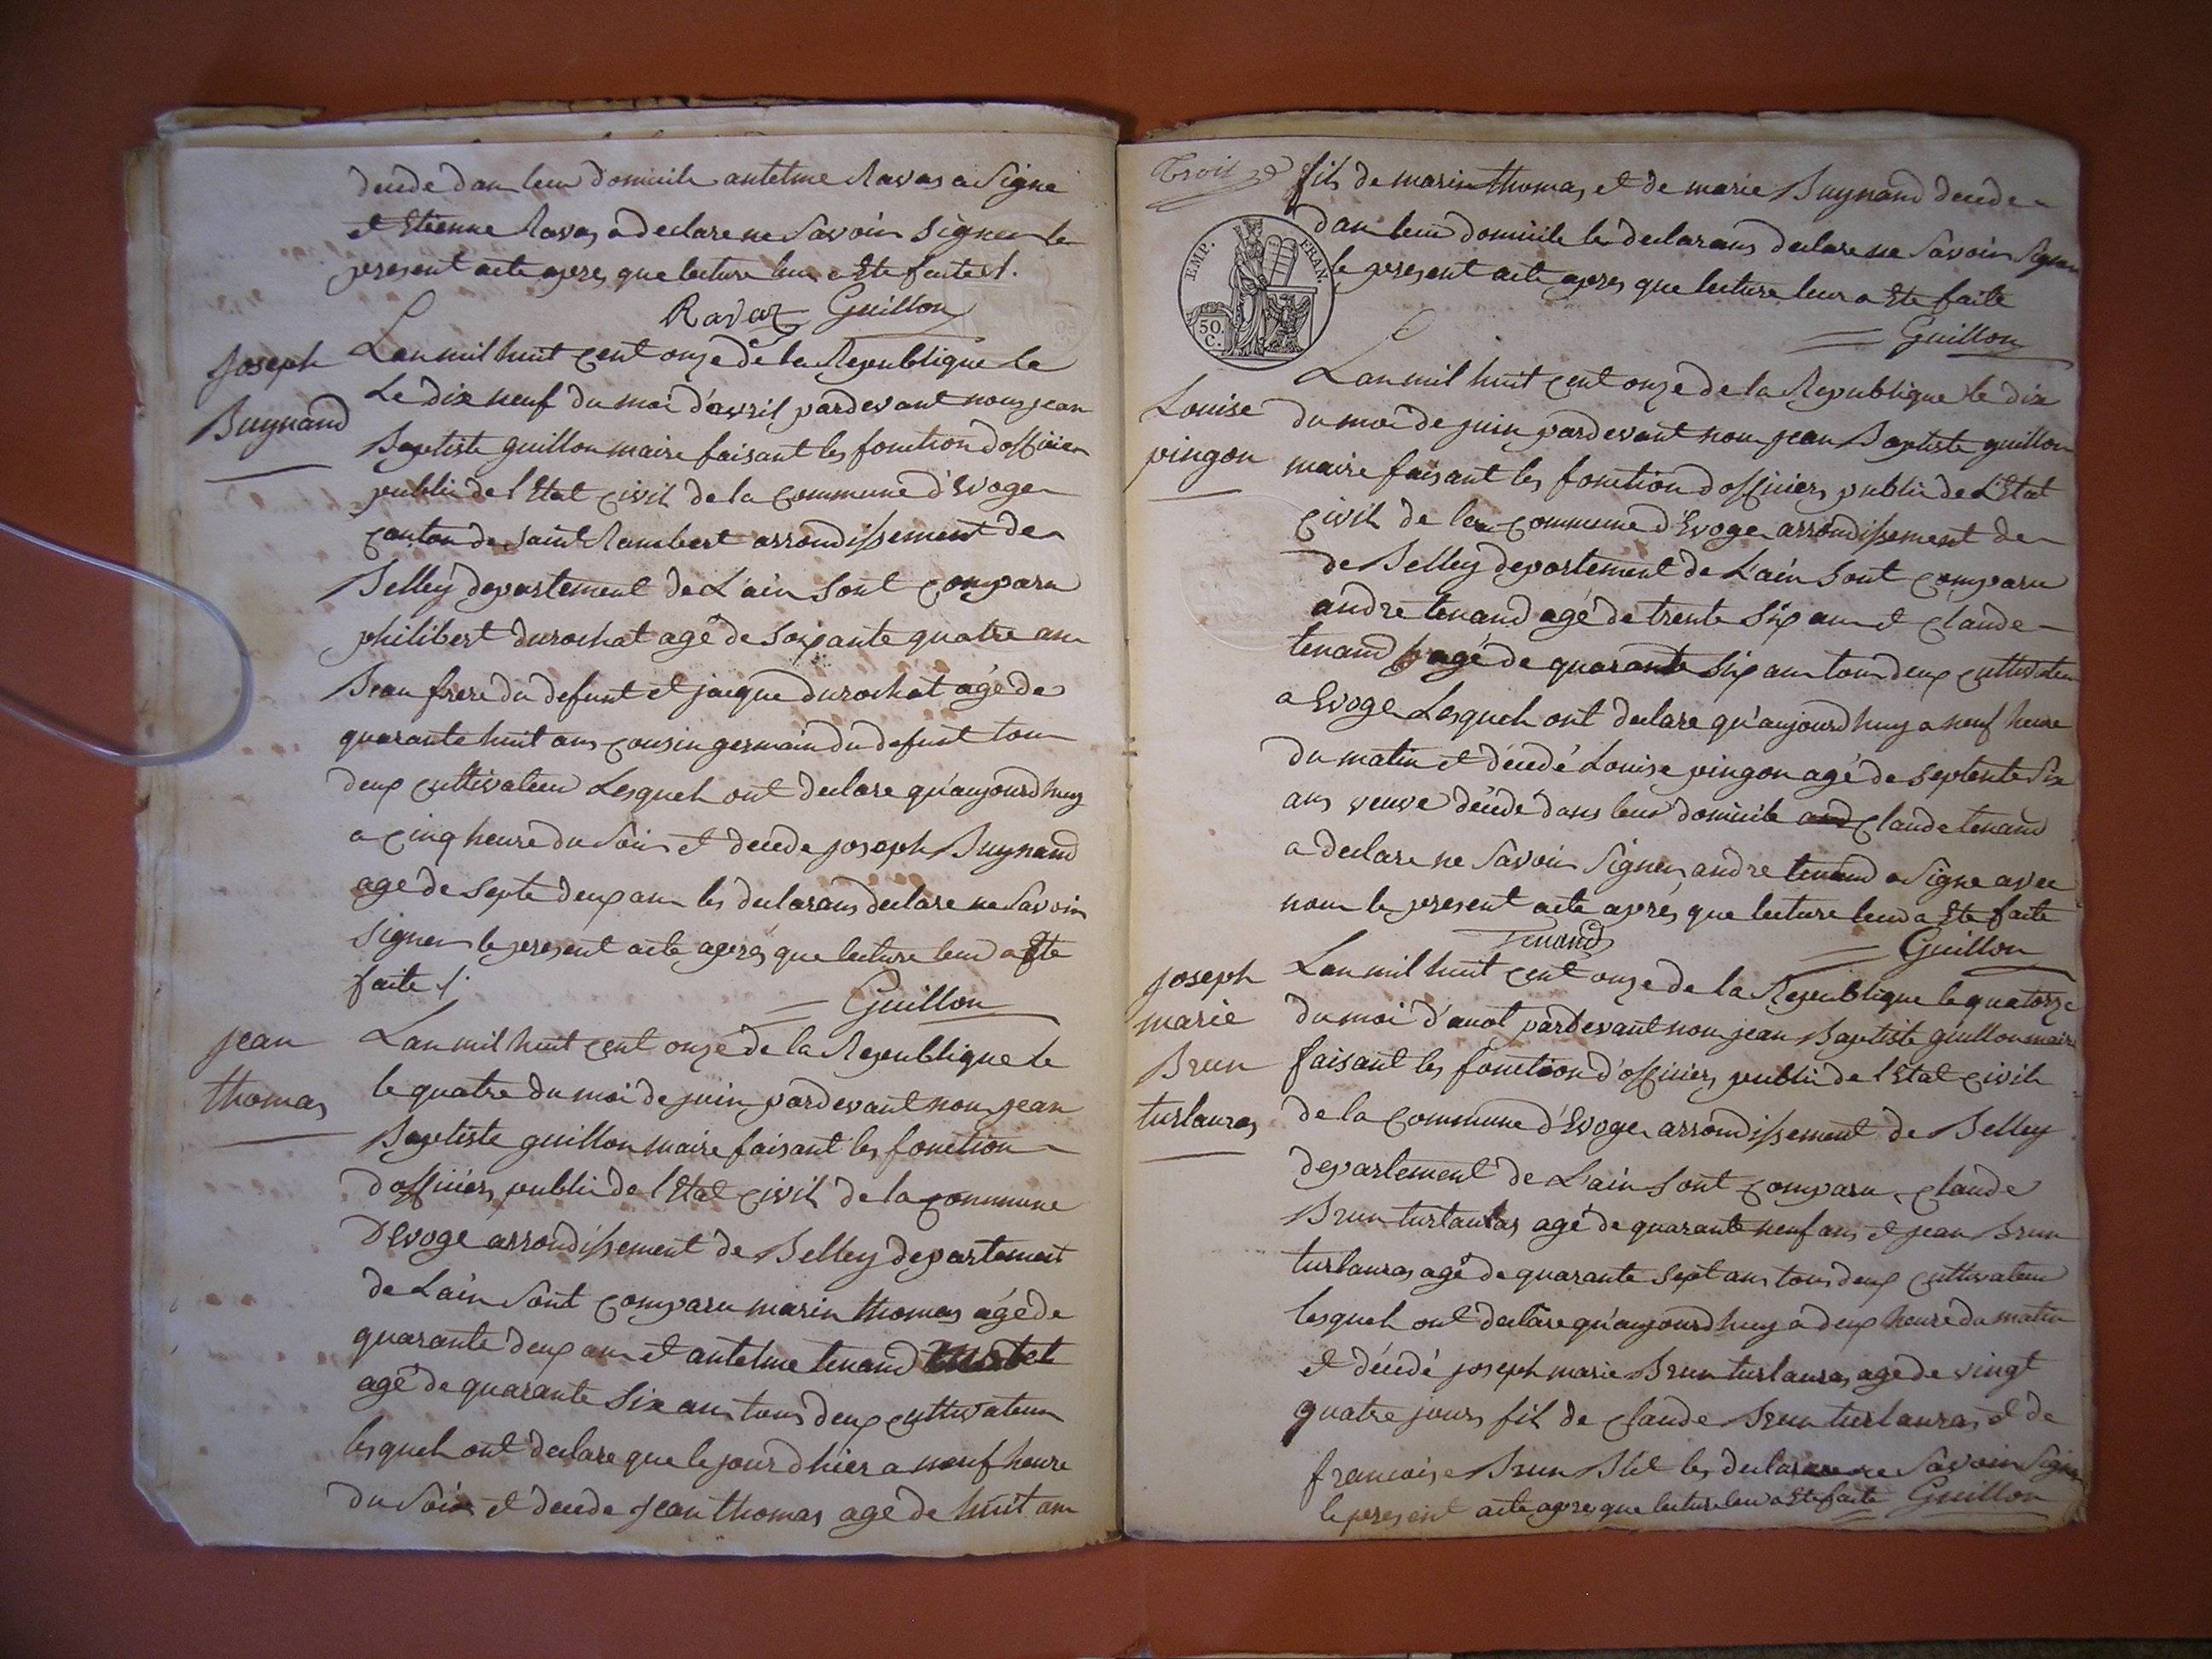 decede dan leur domicile antelme Ravas a Signe
et Etienne Ravas a declare ne Savoir Signer le
present acte apres que lecture leur a Ete faite /.
Ravaz Guillon
Joseph
Buynand
Lan mil huit cent onze de la Republique le
Le dix neuf du moi d'avril pardevant nous jean
Baptiste guillon maire faisant les fonction dofficier
public de l'Etat civil de la commune d'Evoge
canton de saint Rambert arrondissement de
Belley departement de L'ain Sont comparu
philibert durochat agé de soixante quatre an
Beau frere du defunt et jacque durochat agé de
quarante huit ans cousin germain du defunt tou
deux cultivateur Lesquel ont declare qu'aujourdhuy
a cinq heure du Soir et decede joseph Buynand
age de septe deux an les declarans declare ne Savoir
signer le present acte apres que lecture leur a Ete
faite /.
Guillon
jean
thomas
Lan mil huit cent onze de la Republique le
le quatre du moi de juin pardevant nou jean
Baptiste guillon maire faisant les fonction
dofficier public de l'Etat civil de la commune
D'Evoge arrondissement de Belley departement
de Lain Sont comparu marin thomas agé de
quarante deux an et antelme tenand
agé de quarante Six an tous deux cultivateur
lesquel ont declare que le jour dhier a neuf heure
du Soir et decede Jean thomas age de huit an
fils de marin thomas et de marie Buynand decede
dan leur domicile les declarans declare ne Savoir Signer
le present acte apres que lecture leur a Ete faite
Guillon
EMP. FRAN.
50.
C.
Louise
pingon
Lan mil huit cent onze de la Republique le dix
du moi de juin pardevant nou jean Baptiste guillon
maire faisant les fonction dofficier public de L'Etat
civil de la commune d'Evoge arrondissement de
de Belley departement de L'ain Sont comparu
andre tenand agé de trente Six an et claude
tenand agé de quarante Six an tou deux cultivateur
a Evoge Lesquel ont declare qu'aujourdhuy a neuf heure
du matin et décédé Louise pingon agé de septente Six
ans veuve décédé dans leur domicile and claude tenand
a declare ne Savoir Signer andre tenand a Signe avec
nou le present acte après que lecture leur a Ete faite
Tenand Guillon
joseph
marie
Brun
turlauras
Lan mil huit cent onze de la Republique le quatorze
du moi d'auot pardevant nou jean Baptiste guillon maire
faisant les fonction d'officier public de l'Etat civil
de la commune d'Evoge arrondissement de Belley
departement de L'ain Sont comparu claude
Brun turlauras agé de quarante neuf ans et jean Brun
turlauras agé de quarante Sept ans tous deux cultivateur
lesquel ont declare qu'aujourdhuy a deux heure du matin
et décédé joseph marie Brun turlauras age de vingt
quatre jours fil de claude Brun turlauras et de
francoise Brun les declarans ne Savoir Signer
le present acte apres que lecture leur a Ete faite Guillon